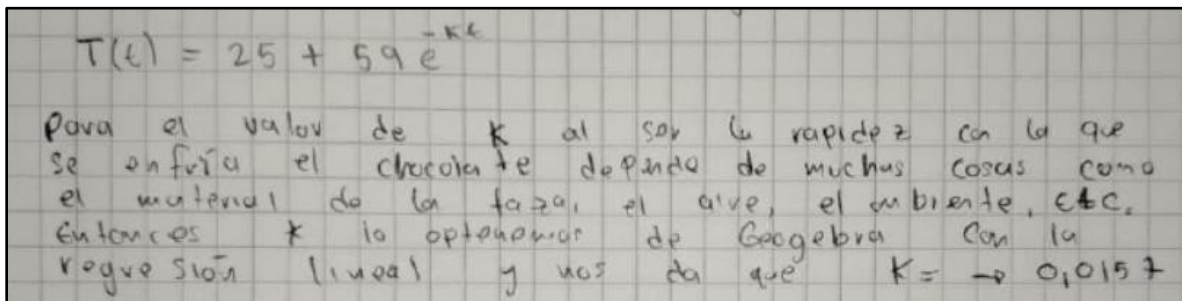 T(t) = 25 + 59 e^{-kt}
Para el valor de k al ser la rapidez con la que
se enfría el chocolate depende de muchas cosas como
el material de la taza, el aire, el ambiente, etc.
Entonces k lo optenemos de Geogebra con la
regresión lineal y nos da que k = → 0,0157